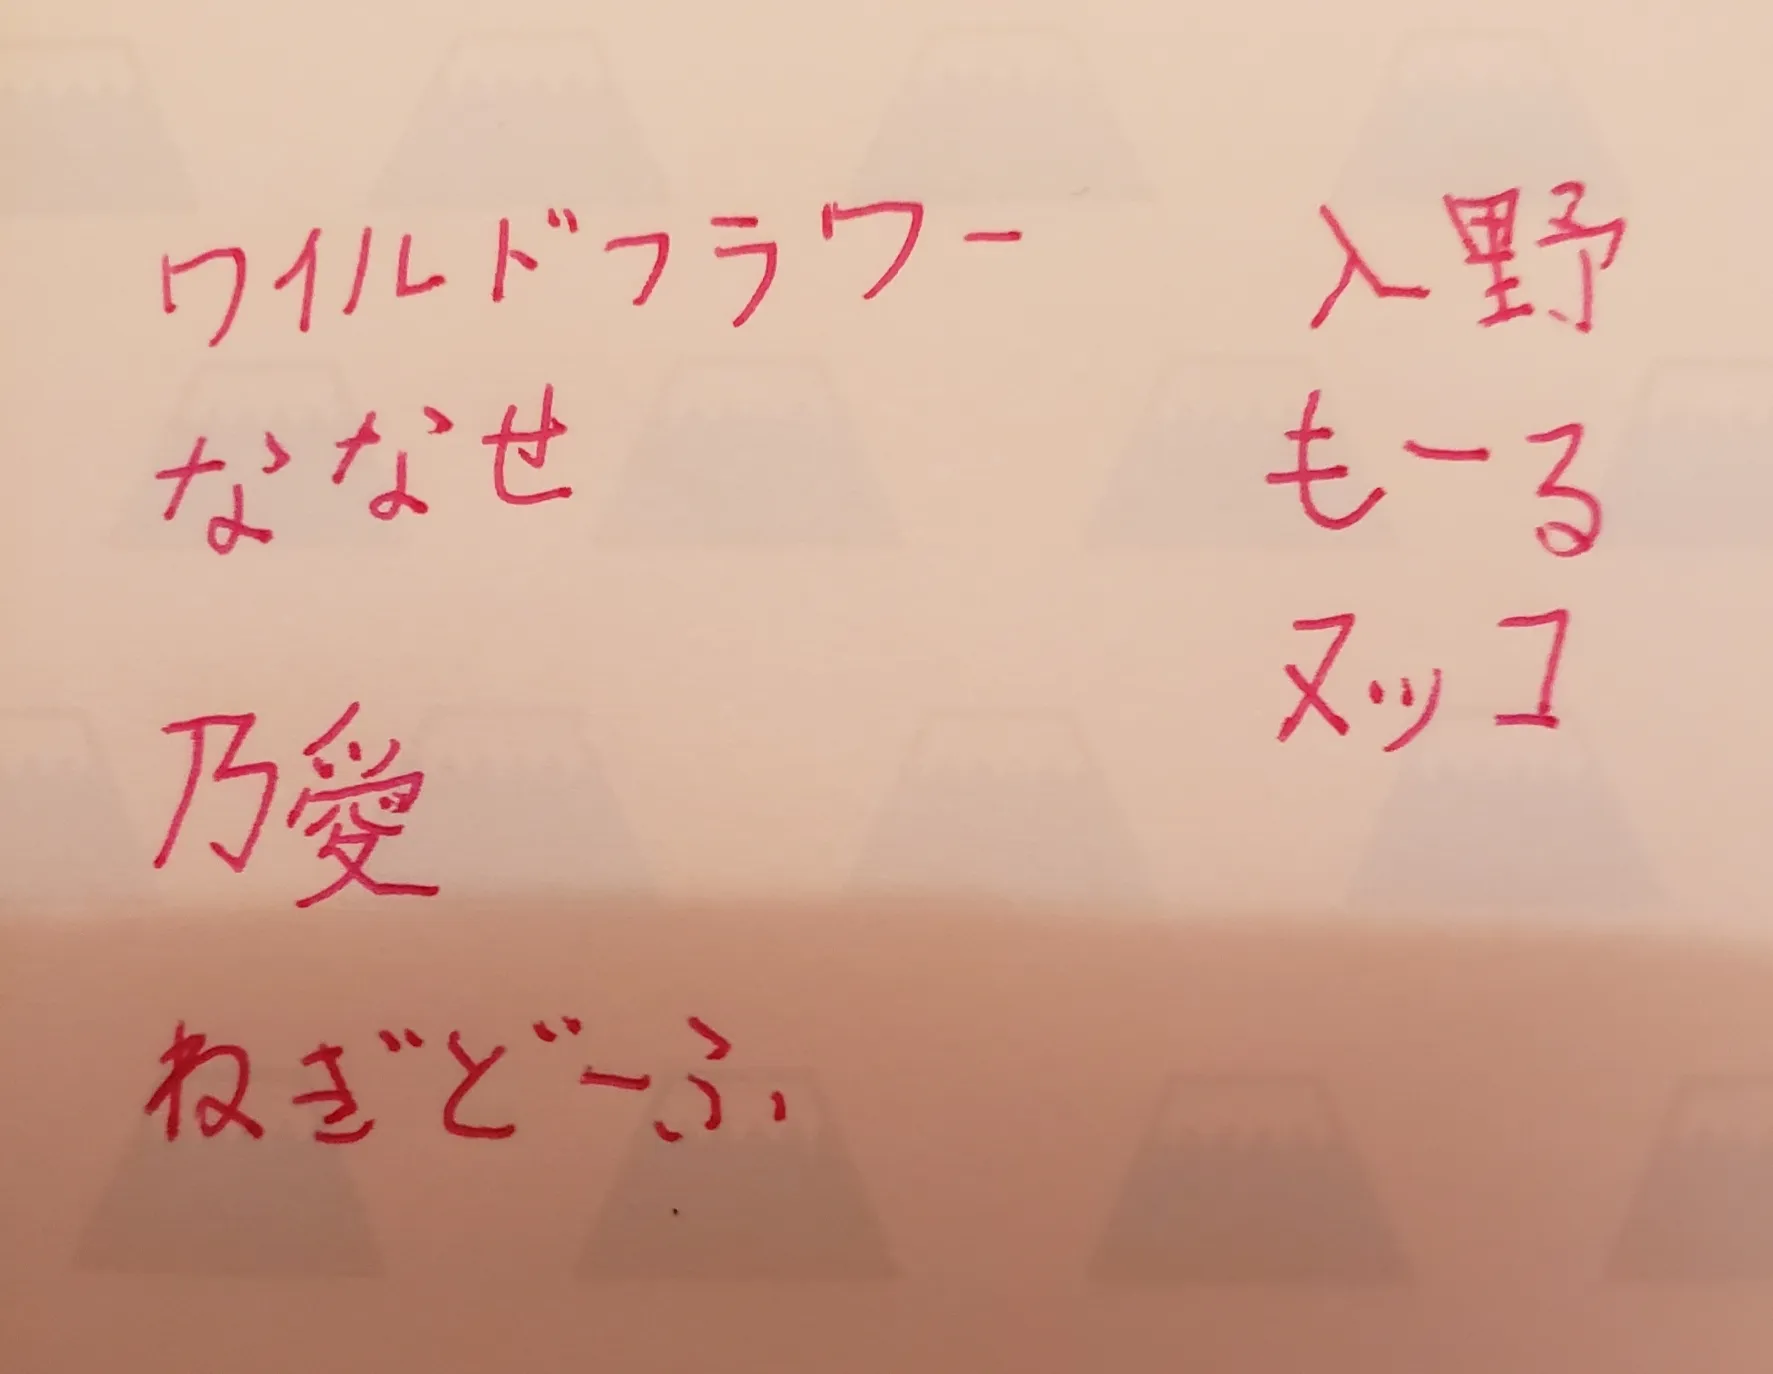 ワイルドフラワー
ななせ
乃愛
ねぎどーふ
入野
もーる
ヌッコ